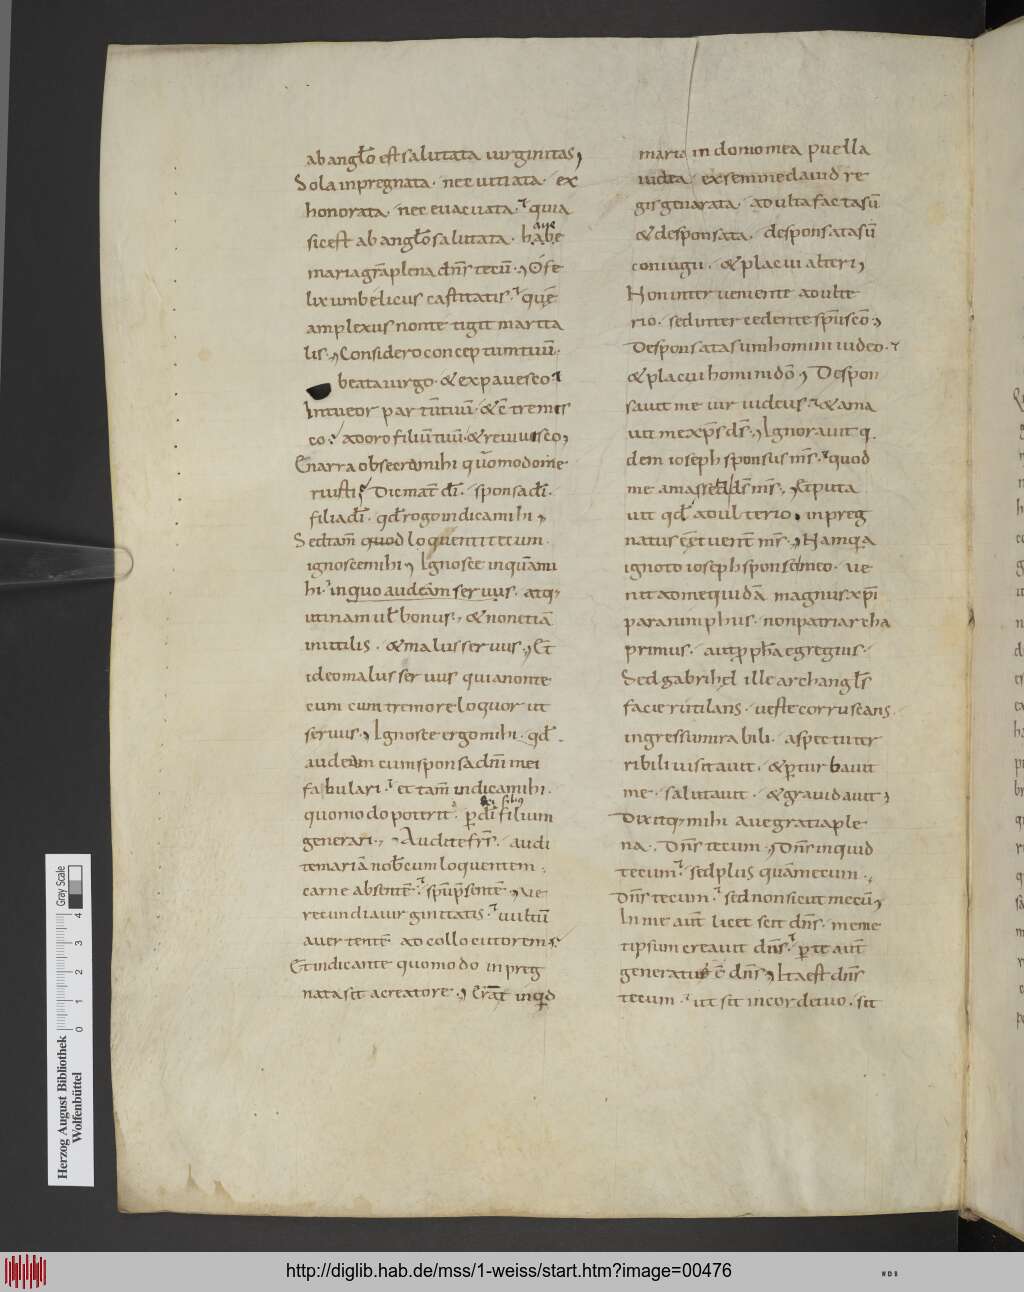 ab anglo est salutata uirginitas,
Sola inpregnata. nec uitiata. ex
honorata. nec euacuata. quia
sic est ab anglo salutata. habe
aue
maria gra plena dns tecu. O fe
lix umbelicus castitatis. que
amplexus non te tigit marita
lis. Considero conceptum tuu.
beata uirgo. & expauesco
Intueor partu tuu. & c tremis
co. adoro filiu tuu. & reuiuisco,
Enarra obsecro mihi quomodo me
Dic mat di. sponsa di.
filia di. qd rogo indica mihi,
Sed tam quod loquenti tecum.
ignosce mihi, Ignosce inqua mi
hi. in quo audeam seruus. atq;
utinam ul bonus, & non etia
inutilis. & malus seruus, Et
ideo malus seruus qui a non te
cum cum tremore loquor ut
seruus, Ignosce ergo mihi. qd
audeam cum sponsa dni mei
fabulari. et tam indica mihi.
filius
quomodo potterit. p di filium
generari. Audite frs. audi
te maria nobcum loquentem.
carne absente. spu psente, Ue
recundia uirginitatis. uultu
auertente ad collocutorem.
Et indicante quomodo inpreg
nata sit a creatore, Erat inqd
maria in domo mea puella
iudea. ex semine dauid re
gis generata. adulta facta su
& desponsata. desponsata su
coniugii. & placui alteri,
Non interueniente adulte
rio. sed intercedente spu sco,
Desponsata sum homini iudeo.
& placui homini do, Despon
sauit me uir iudeus. & ama
uit me xps ds, Ignorauit q
dem ioseph sponsus ms. quod
me amasset ds ms, Et puta
uit qd adulterio inpreg
natus eet uent ms, Namqa
ignoto ioseph sponso meo. ue
nit ad me quida magnus xpi
paranimphus. non patriarcha
primus. aut ppha egregius.
Sed gabrihel ille archangls
facie rutilans. ueste corruscans.
ingressu mirabili. aspectu ter
ribili uisitauit. & pturbauit
me. salutauit. & grauidauit,
Dixitq; mihi aue gratia ple
na. Dns tecum, Dns inquid
tecum. sed plus quam tecum.
Dns tecum. sed non sicut mecu,
In me aut licet seit dns. me me
tipsum creauit dns. p te aut
generatus e dns, Ita est dns
tecum. ut sit in corde tuo. sit
Gray Scale
0 1 2 3 4
Herzog August Bibliothek
Wolfenbüttel
http://diglib.hab.de/mss/1-weiss/start.htm?image=00476